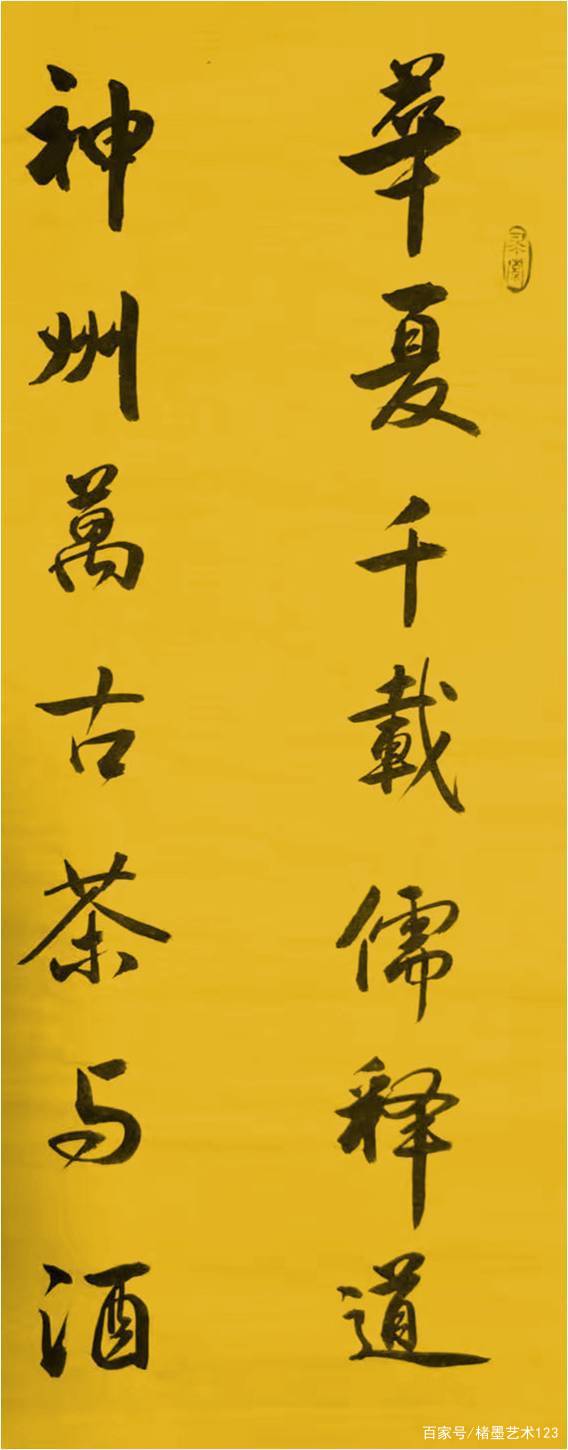 華夏千載儒释道
神州萬古茶与酒
百家号/楮墨艺术123